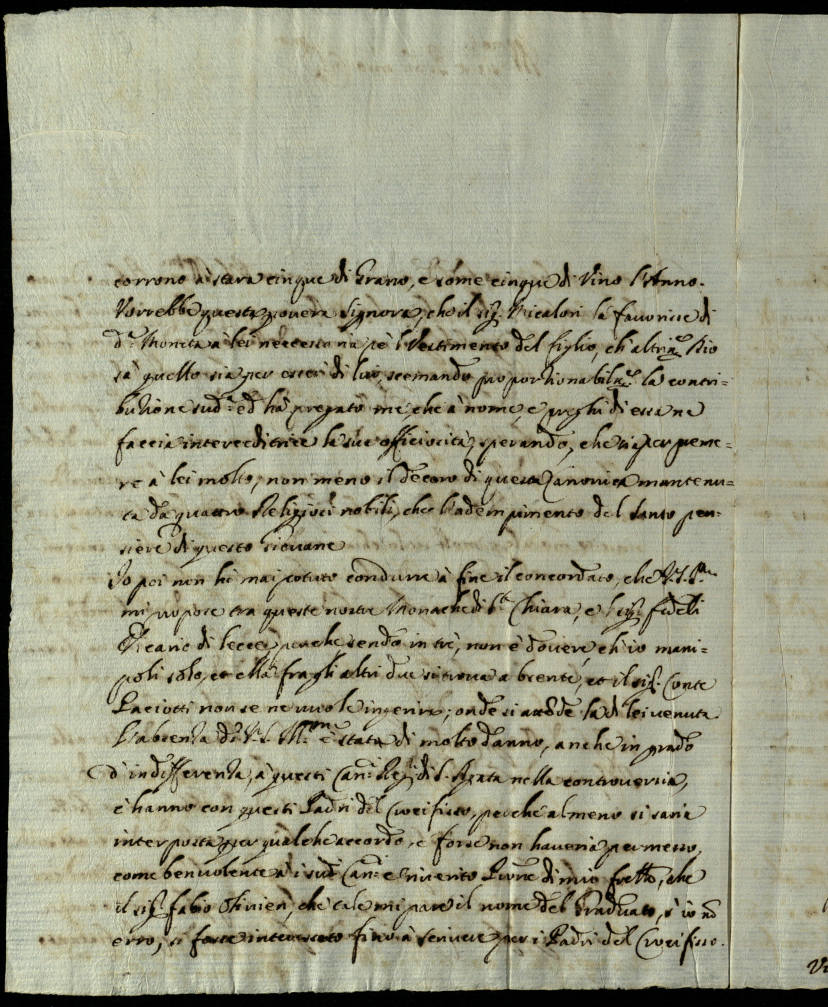 corrono à stara cinque di Grano, e some cinque di Vino l'Anno.
Vorrebbe questa povera Signora, che il sig. Micalori la favorisse di
d.ª Moneta à lei necessaria pe 'l Vestimento del figlio, ch' altrim.te
sà quello sia per esser di lui, scemando proportionabilm.te la contri=
butione sud.ª ed hà pregato me che à nome, e preghi di essa ne
faccia interceditrice la sua officiosità, sperando, che sia per preme=
re à lei molto, non meno il decoro di questa Canonica mantenu=
ta da quattro Religiosi nobili, che l'adempimento del santo pen=
siere di questo Giovane
Io poi non hò mai potuto condurre à fine il concordato, che V.S. Ill.ma
mi propose tra queste nostre Monache di S.ta Chiara, e 'l sig. fedeli
Vicario di Lecce, perche sendo in trè, non è dovere ch' io mani=
poli solo, et ella fra gli altri due si trova absente, et il sig. Conte
Paciotti non se ne vuole ingerire; onde si attende la di lei venuta
L'absenza di V.S. Ill.ma è stata di molto danno, anche in grado
d'indifferenza, à questi Can.ci Reg.ri di S. Agata nella controversia,
c'hanno con questi Padri del Crocifisso, perche almeno si saria
interposta per qualche accordo, e forse non haveria permesso,
come benvolente à i sud.i Can.ci e riverito Prone di mio frello, che
il sig. fabio che tale mi pare il nome del Graduato, s' io nõ
erro, si fosse fino à scrivere per i Padri del Crocifisso.